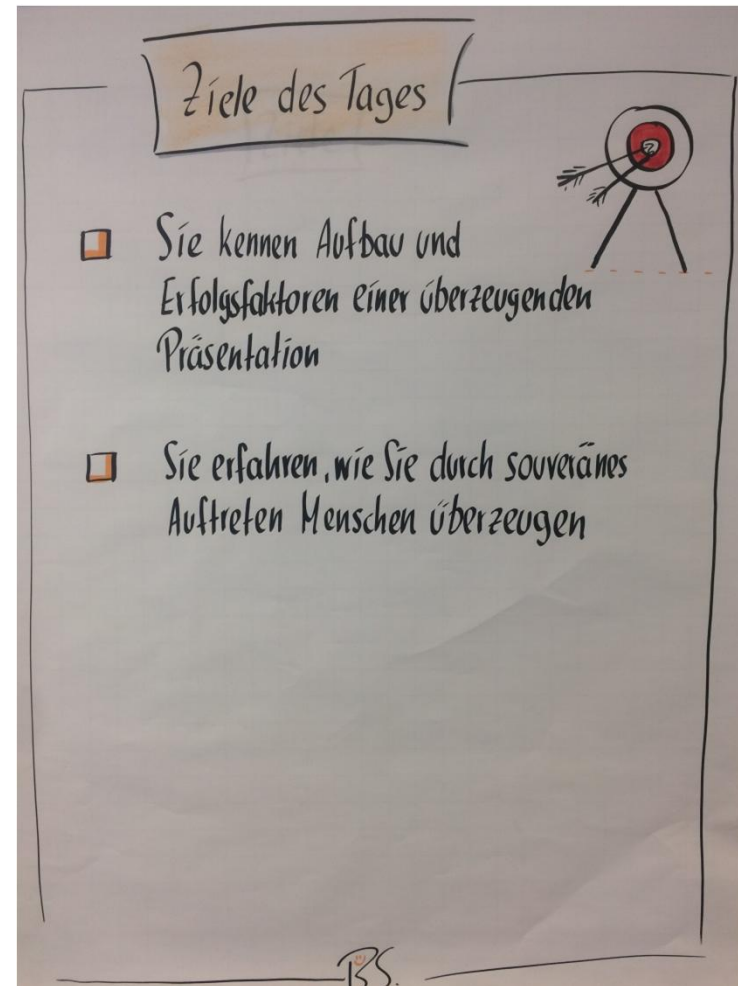 Ziele des Tages
Sie kennen Aufbau und
Erfolgsfaktoren einer überzeugenden
Präsentation
Sie erfahren, wie Sie durch souveränes
Auftreten Menschen überzeugen
BS.